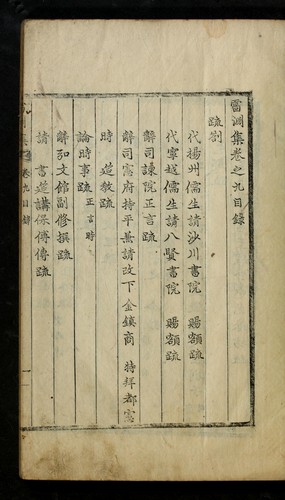 雷淵集卷之九目錄
疏劄
代楊州儒生請沙川書院　賜額疏
代寧越儒生請八賢書院　賜額疏
辭司諫院正言疏
辭司憲府持平兼請改下金鎭商　特拜都憲
時　㫖敎疏
論時事疏正言時
辭弘文館副修撰疏
請　書筵講保傅傳疏
卷九目錄
一